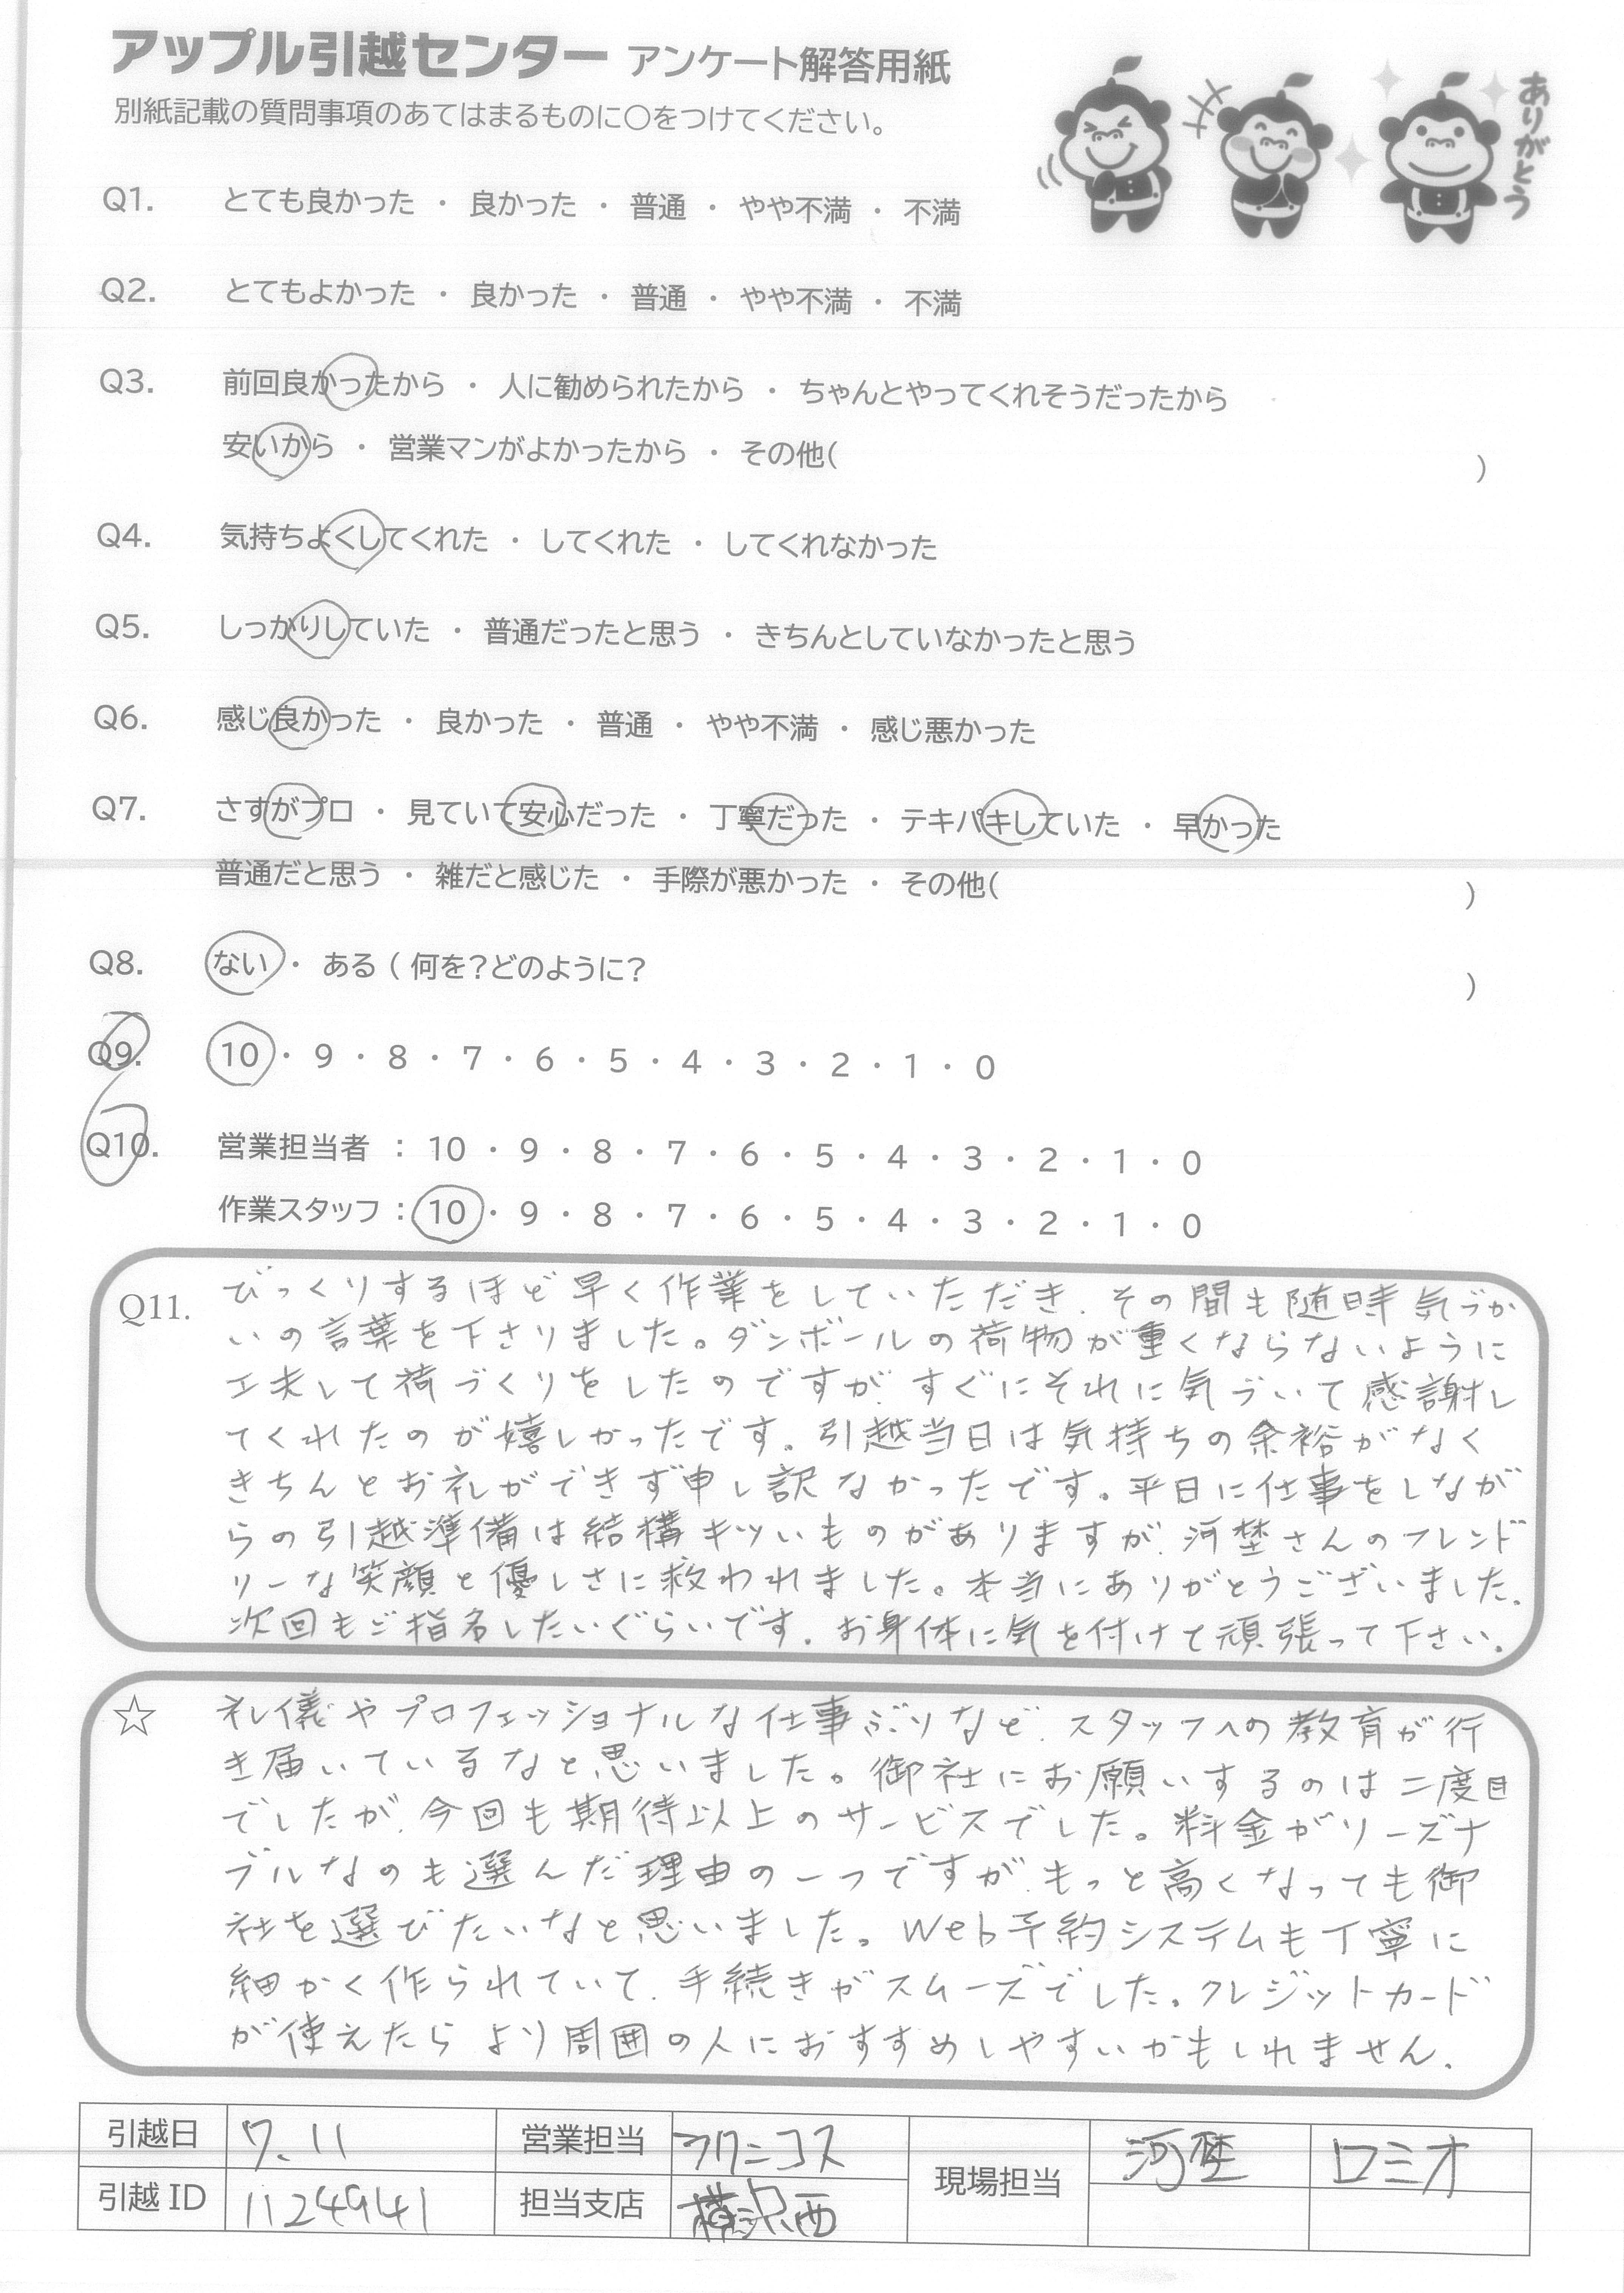 アップル引越センター アンケート解答用紙
別紙記載の質問事項のあてはまるものに〇をつけてください。
ありがとう
Q1. とても良かった ・ 良かった ・ 普通 ・ やや不満 ・ 不満
Q2. とてもよかった ・ 良かった ・ 普通 ・ やや不満 ・ 不満
Q3. 前回良かったから ・ 人に勧められたから ・ ちゃんとやってくれそうだったから
安いから ・ 営業マンがよかったから ・ その他( )
Q4. 気持ちよくしてくれた ・ してくれた ・ してくれなかった
Q5. しっかりしていた ・ 普通だったと思う ・ きちんとしていなかったと思う
Q6. 感じ良かった ・ 良かった ・ 普通 ・ やや不満 ・ 感じ悪かった
Q7. さすがプロ ・ 見ていて安心だった ・ 丁寧だった ・ テキパキしていた ・ 早かった
普通だと思う ・ 雑だと感じた ・ 手際が悪かった ・ その他( )
Q8. ない ・ ある ( 何を?どのように? )
Q9. 10 ・ 9 ・ 8 ・ 7 ・ 6 ・ 5 ・ 4 ・ 3 ・ 2 ・ 1 ・ 0
Q10. 営業担当者 : 10 ・ 9 ・ 8 ・ 7 ・ 6 ・ 5 ・ 4 ・ 3 ・ 2 ・ 1 ・ 0
作業スタッフ : 10 ・ 9 ・ 8 ・ 7 ・ 6 ・ 5 ・ 4 ・ 3 ・ 2 ・ 1 ・ 0
Q11. びっくりするほど早く作業をしていただき、その間も随時気づか
いの言葉を下さりました。ダンボールの荷物が重くならないように
工夫して荷づくりをしたのですが、すぐにそれに気づいて感謝し
てくれたのが嬉しかったです。引越当日は気持ちの余裕がなく
きちんとお礼ができず申し訳なかったです。平日に仕事をしなが
らの引越準備は結構キツいものがありますが、河埜さんのフレンド
リーな笑顔と優しさに救われました。本当にありがとうございました。
次回もご指名したいぐらいです。お身体に気を付けて頑張って下さい。
☆ 礼儀やプロフェッショナルな仕事ぶりなど、スタッフへの教育が行
き届いているなと思いました。御社にお願いするのは二度目
でしたが、今回も期待以上のサービスでした。料金がリーズナ
ブルなのも選んだ理由の一つですが、もっと高くなっても御
社を選びたいなと思いました。Web予約システムも丁寧に
細かく作られていて、手続きがスムーズでした。クレジットカード
が使えたらより周囲の人におすすめしやすいかもしれません。
引越日 7.11 営業担当 フクニコス 現場担当 河埜 ロミオ
引越 ID 1124941 担当支店 横浜西